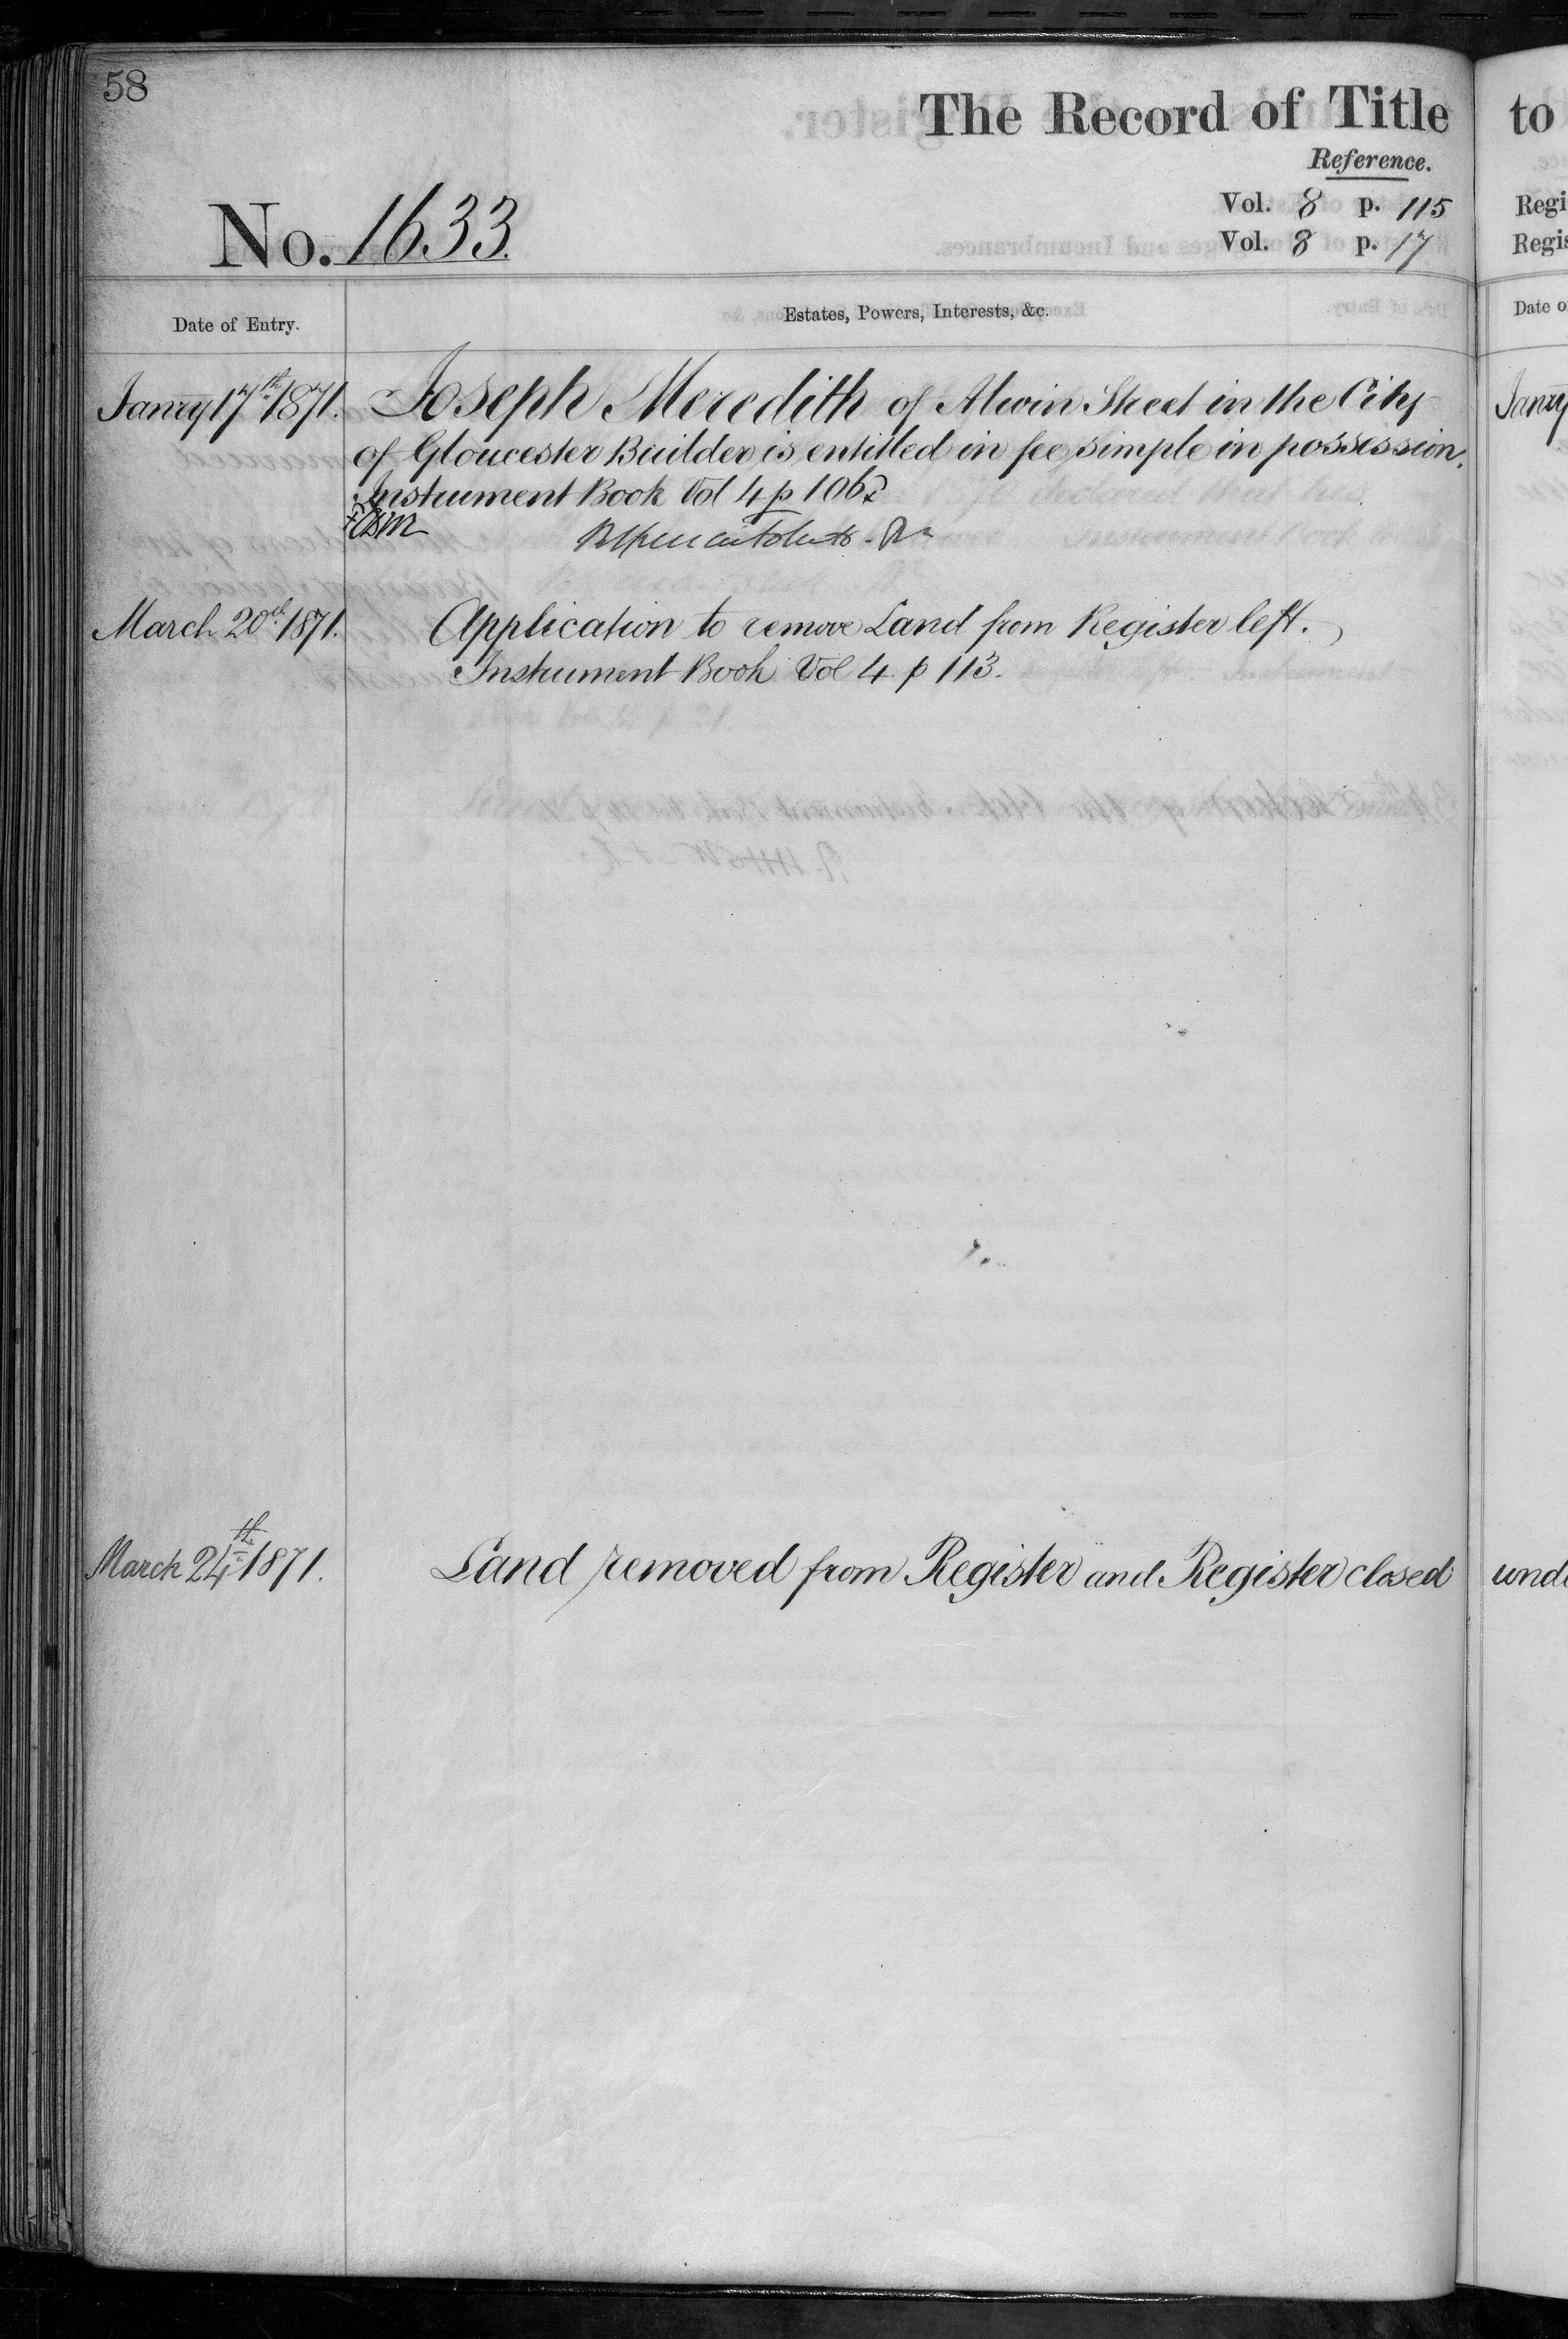 58
The Record of Title
Reference.
No. 1633.
Vol. 8 p. 115
Vol. 8 p. 17
Date of Entry.
Estates, Powers, Interests, &c.
Janry 17th 1871. Joseph Meredith of Alwin Street in the City
of Gloucester Builder is entitled in fee simple in possession.
Instrument Book Vol 4 p 106
March 20th 1871. Application to remove Land from Register left.
Instrument Book Vol 4 p 113.
March 24th 1871. Land removed from Register and Register closed
to
Regi
Regis
Date o
Janry
unde